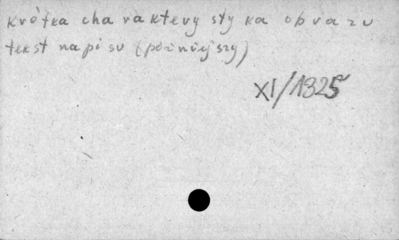 Krótka charakterystyka obrazu
tekst napisu (późniejszy)
XI/1325